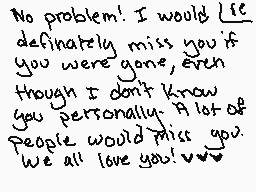 No problem! I would
definately miss you if
you were gone, even
though I don't know
you personally. A lot of
people would miss you.
We all love you! ♥♥♥